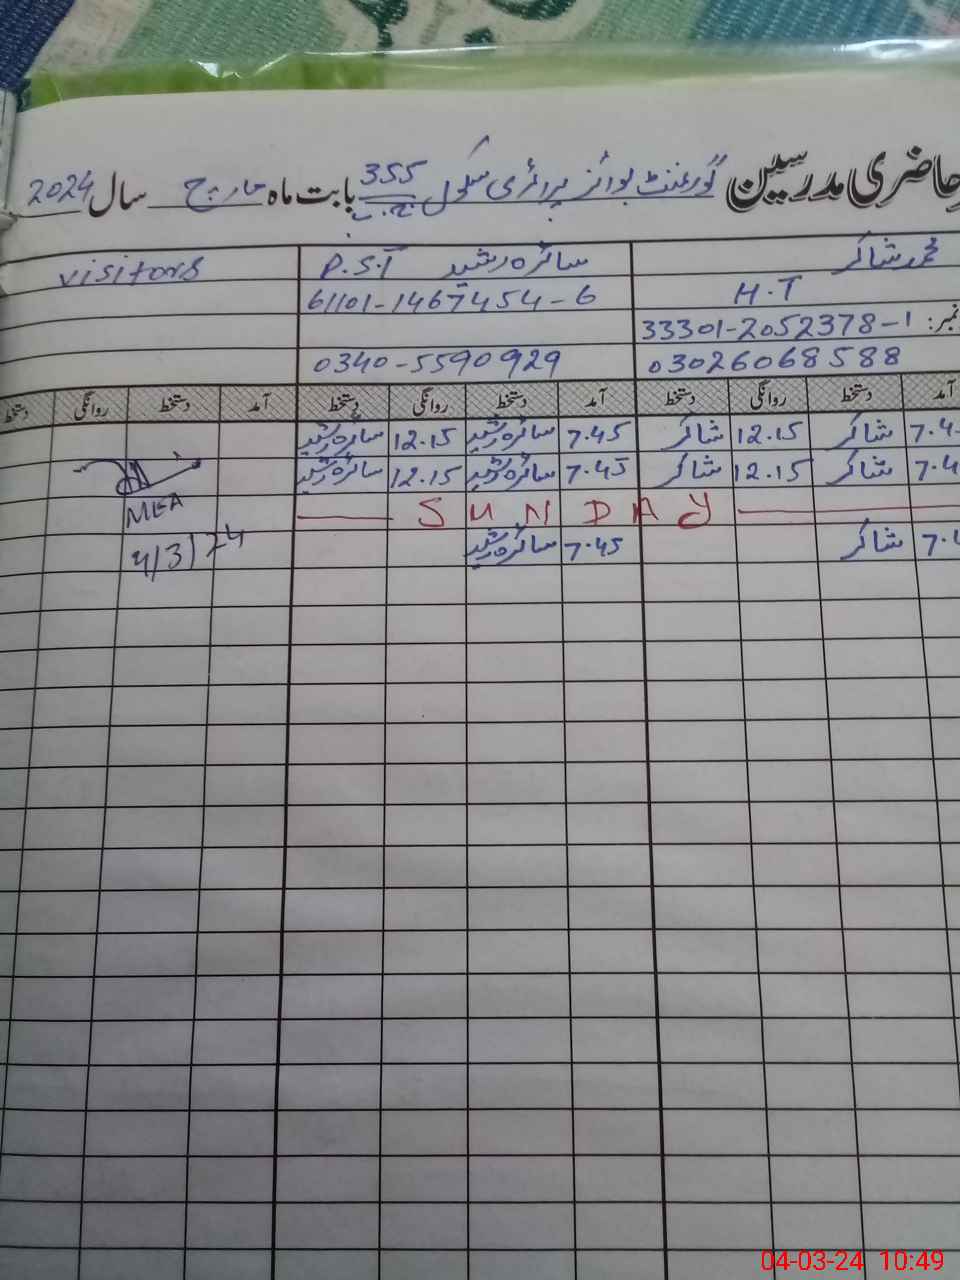 حاضری مدرسین گورنمنٹ بوائز پرائمری سکول 355 بابت ماہ مارچ سال 2024
محمد شاکر سائرہ رشید P.S.T visitors
H.T 61101-1467454-6
نمبر: 33301-2052378-1
03026068588 0340-5590929
آمد دستخط روانگی دستخط آمد دستخط روانگی دستخط آمد دستخط روانگی دستخط
7.45 شاکر 12.15 شاکر 7.45 سائرہ رشید 12.15 سائرہ رشید
7.4 شاکر 12.15 شاکر 7.45 سائرہ رشید 12.15 سائرہ رشید
SUNDAY MEA
7.4 شاکر 7.45 سائرہ رشید 4/3/24
04-03-24 10:49